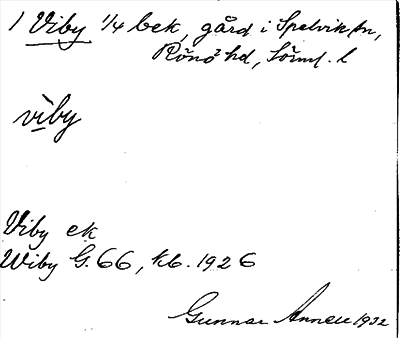 1 Viby 1/4 bek, gård i Spelvik sn,
Rönö hd, Sörml. l
viby
Viby ek
Wiby G. 66, kb. 1926
Gunnar Annell 1932